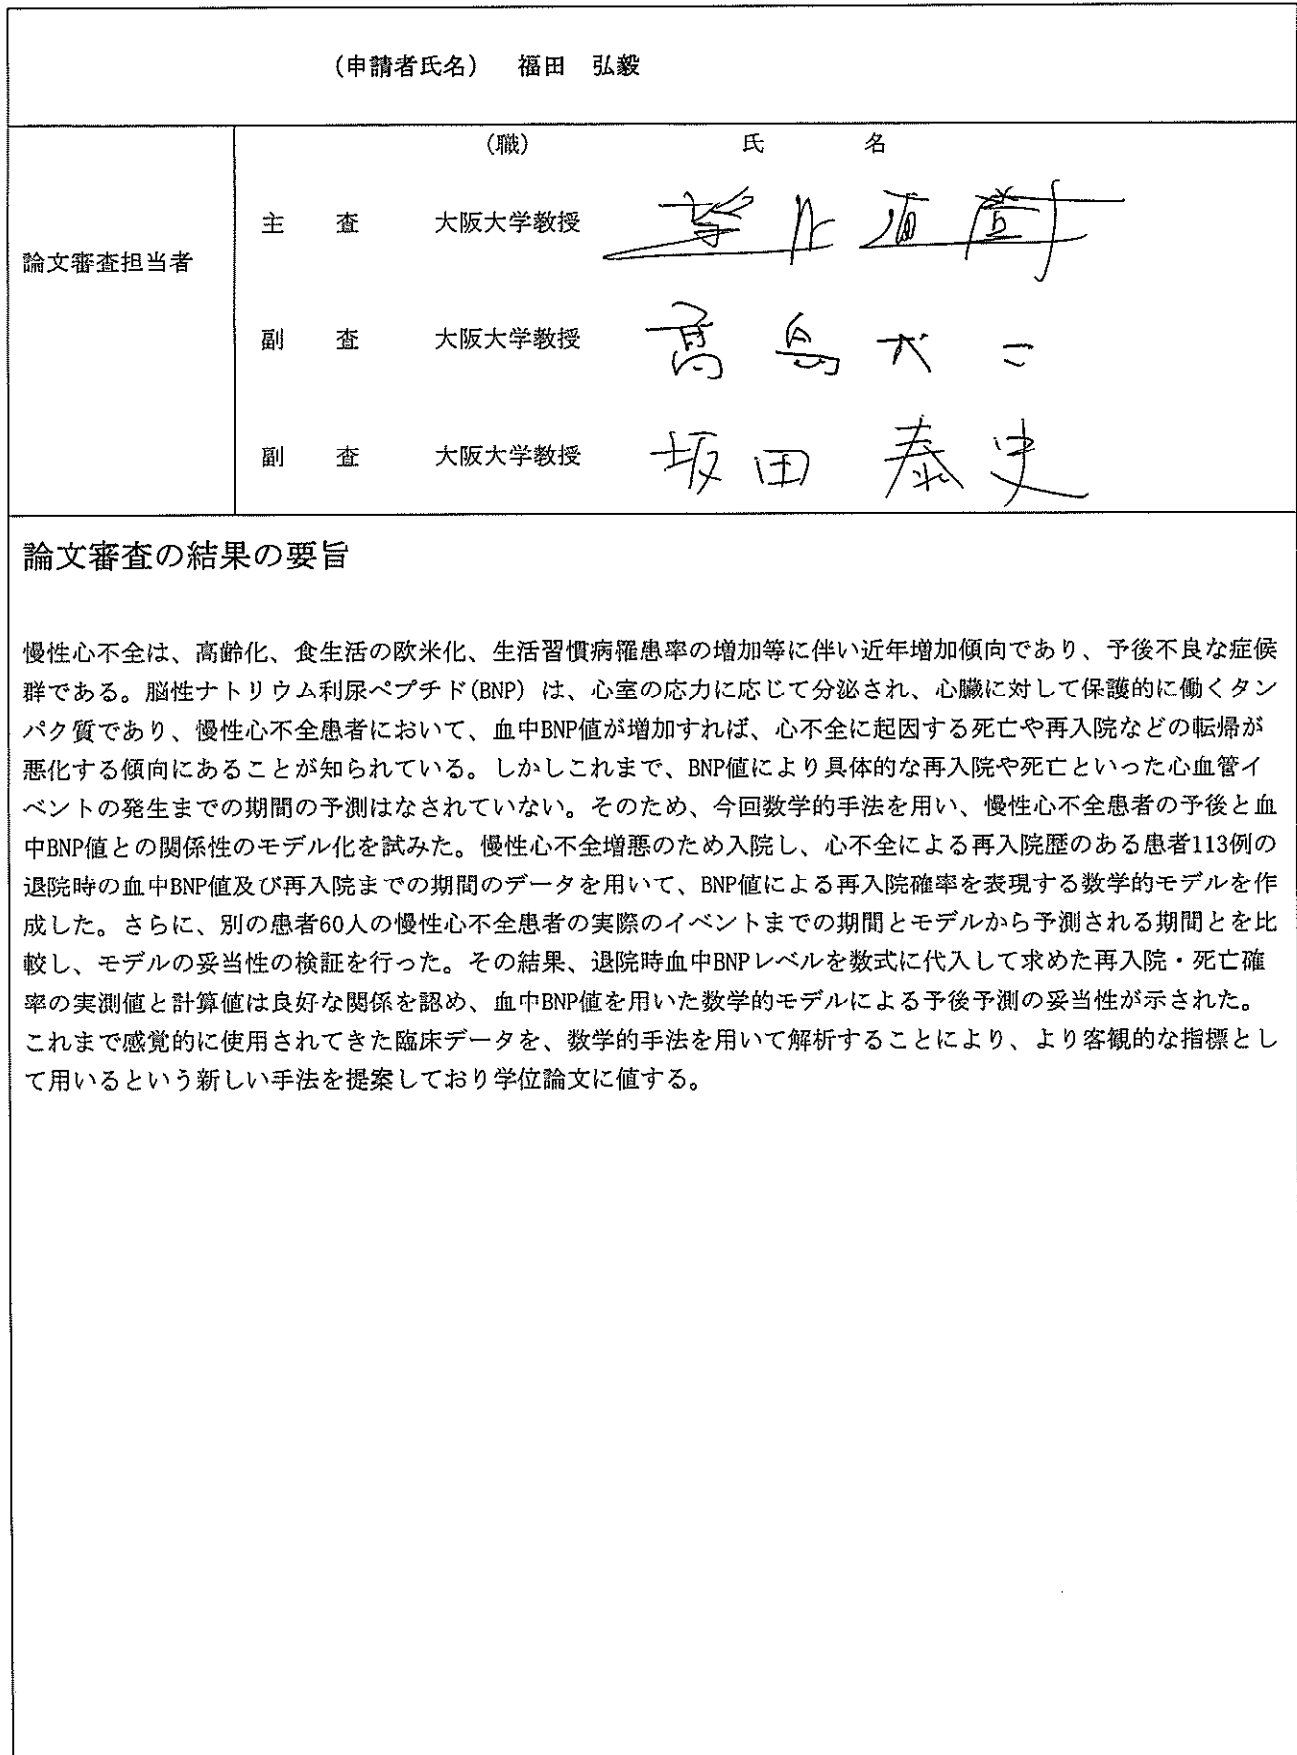 (申請者氏名) 福田 弘毅
(職) 氏 名
主 査 大阪大学教授
論文審査担当者
副 査 大阪大学教授 髙島成二
副 査 大阪大学教授 坂田泰史
論文審査の結果の要旨
慢性心不全は、高齢化、食生活の欧米化、生活習慣病罹患率の増加等に伴い近年増加傾向であり、予後不良な症候
群である。脳性ナトリウム利尿ペプチド(BNP) は、心室の応力に応じて分泌され、心臓に対して保護的に働くタン
パク質であり、慢性心不全患者において、血中BNP値が増加すれば、心不全に起因する死亡や再入院などの転帰が
悪化する傾向にあることが知られている。しかしこれまで、BNP値により具体的な再入院や死亡といった心血管イ
ベントの発生までの期間の予測はなされていない。そのため、今回数学的手法を用い、慢性心不全患者の予後と血
中BNP値との関係性のモデル化を試みた。慢性心不全増悪のため入院し、心不全による再入院歴のある患者113例の
退院時の血中BNP値及び再入院までの期間のデータを用いて、BNP値による再入院確率を表現する数学的モデルを作
成した。さらに、別の患者60人の慢性心不全患者の実際のイベントまでの期間とモデルから予測される期間とを比
較し、モデルの妥当性の検証を行った。その結果、退院時血中BNPレベルを数式に代入して求めた再入院・死亡確
率の実測値と計算値は良好な関係を認め、血中BNP値を用いた数学的モデルによる予後予測の妥当性が示された。
これまで感覚的に使用されてきた臨床データを、数学的手法を用いて解析することにより、より客観的な指標とし
て用いるという新しい手法を提案しており学位論文に値する。